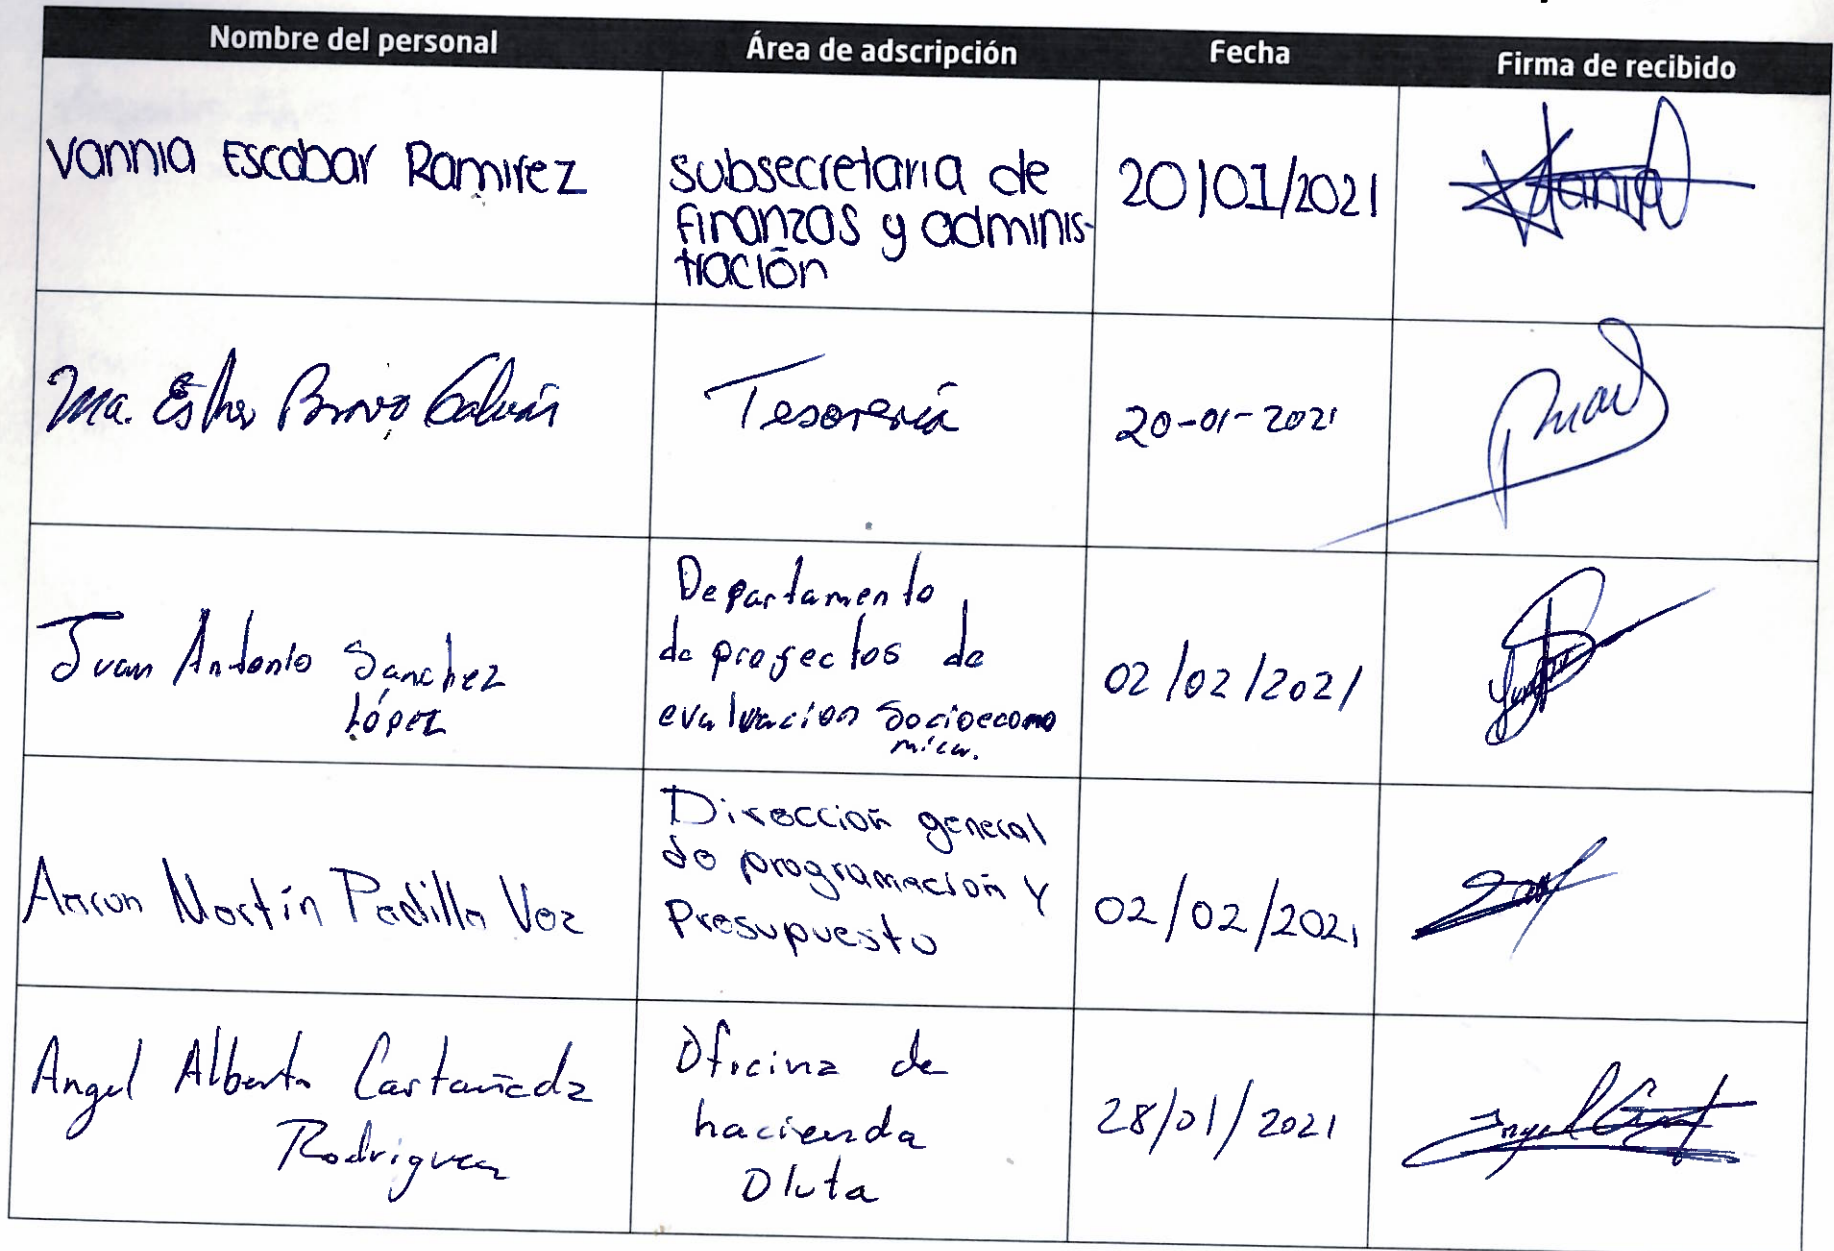 Nombre del personal Área de adscripción Fecha Firma de recibido
Vannia Escobar Ramirez
subsecretaria de
finanzas y adminis-
tración
20/01/2021
Ma. Esther Bravo Galván
Tesorería
20-01-2021
Juan Antonio Sanchez
López
Departamento
de proyectos de
evaluacion Socioecono
mica.
02/02/2021
Aaron Martín Padilla Voz
Dirección general
de programación y
Presupuesto
02/02/2021
Angel Alberto Castañeda
Rodriguez
Oficina de
hacienda
Oluta
28/01/2021